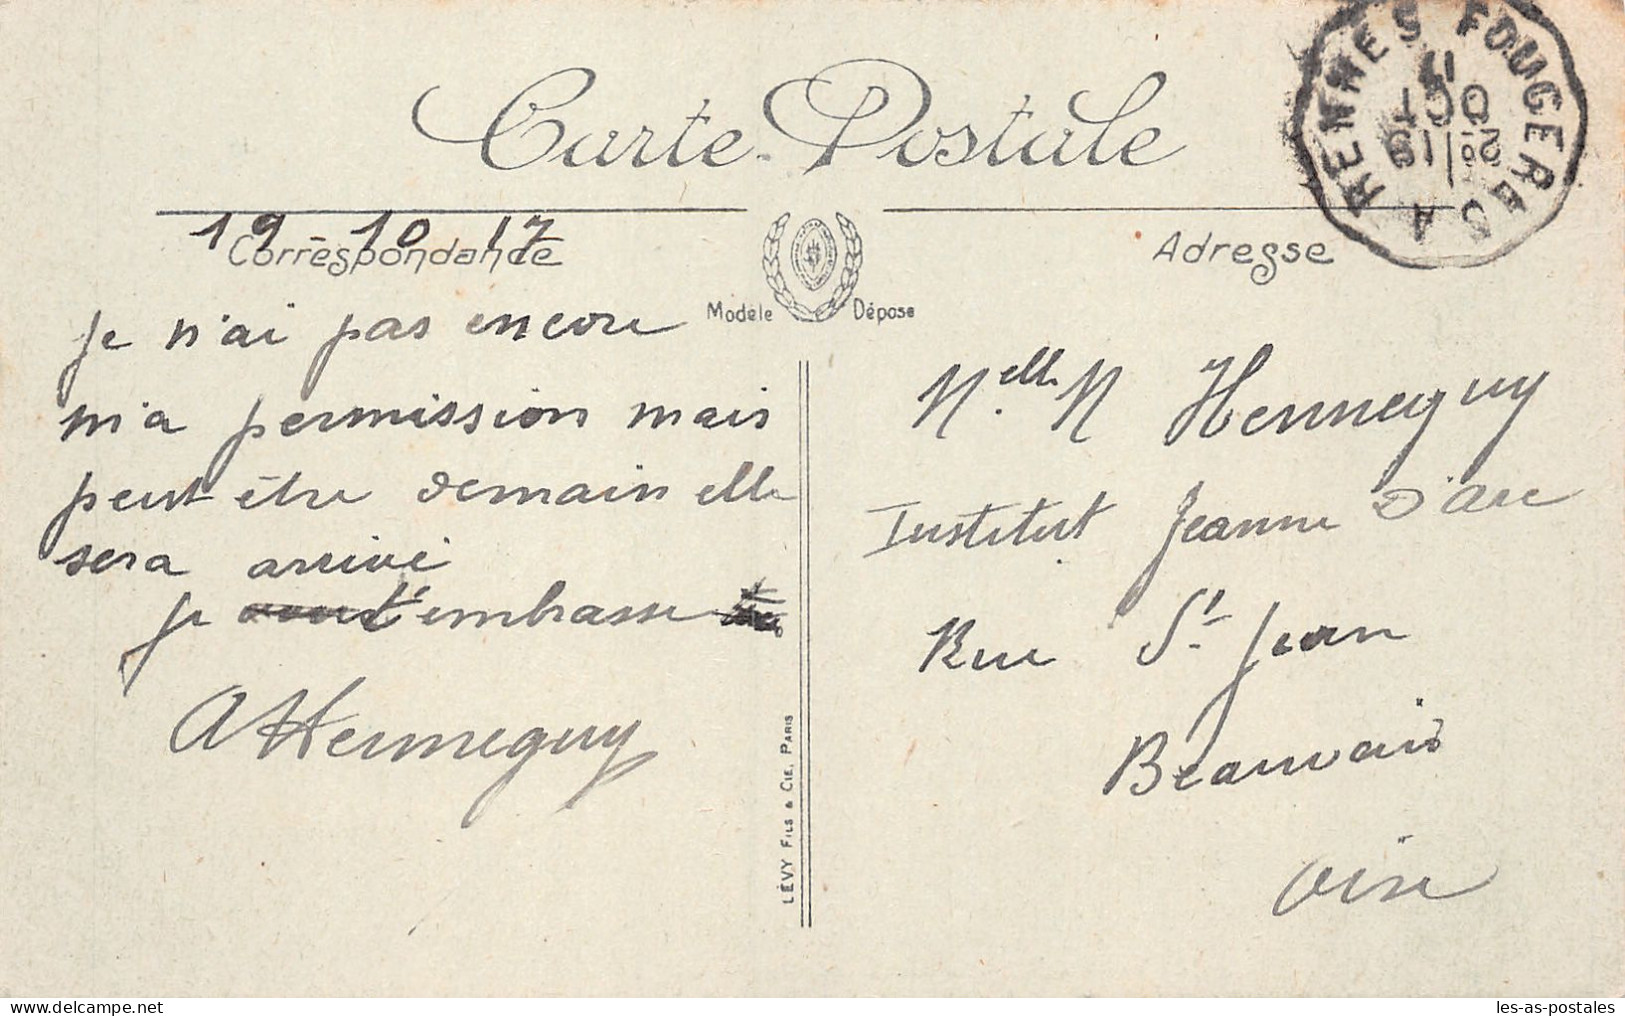 Carte Postale
RENNES FOUGERES A
OCT
19 - 10 17
Correspondance
Adresse
Modèle Déposé
Je n'ai pas encore
m'a permission mais
peut être demain elle
sera arrivé
Je t'embrasse
A Henneguy
Melle N Hennequy
Institut Jeanne D'arc
Rue St Jean
Beauvais
Oise
LÉVY FILS & CIE, PARIS
les-as-postales